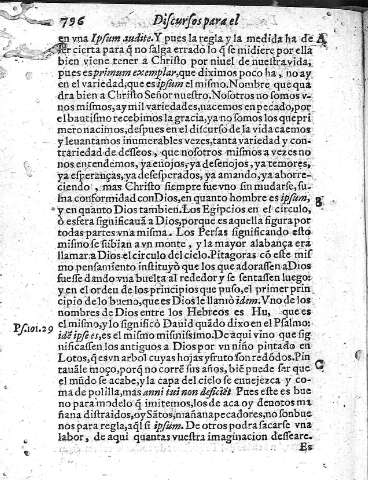 796 Discursos para el
en vna Ipsum audite. Y pues la regla y la medida ha de A
ser cierta para q̃ no salga errado lo q̃ se midiere por ella
bien viene tener a Christo por niuel de nuestra vida,
pues es primum exemplar, que diximos poco ha, no ay
en el variedad, que es ipsum el mismo. Nombre que qua
dra bien a Christo Señor nuestro. Nosotros no somos v-
nos mismos, ay mil variedades, nacemos en pecado, por
el bautismo recebimos la gracia, ya no somos los que pri
mero nacimos, despues en el discurso de la vida caemos
y leuantamos inumerables vezes, tanta variedad y con-
trariedad de desseos, que nosotros mismos a vezes no
nos entendemos, ya enojos, ya desenojos, ya temores,
ya esperanças, ya desesperados, ya amando, ya aborre-
ciendo, mas Christo siempre fue vno sin mudarse, su-
ma conformidad con Dios, en quanto hombre es ipsum,
y en quanto Dios tambien. Los Egipcios en el circulo, B
ò esfera significauã a Dios, porque es aquella figura por
todas partes vna misma. Los Persas significando esto
mismo se subian a vn monte, y la mayor alabança era
llamar a Dios el circulo del cielo. Pitagoras cõ este mis
mo pensamiento instituyò que los que adorassen a Dios
fuesse dando vna buelta al rededor y se sentassen luego:
y en el orden de los principios que puso, el primer prin
cipio de lo bueno, que es Dios le llamò idem. Vno de los
nombres de Dios entre los Hebreos es Hu, que es
Ps. 101. 29 el mismo, y lo significò Dauid quãdo dixo en el Psalmo:
idẽ ipse es, es el mismo mismissimo. De aqui vino que sig
nificassen los antiguos a Dios por vn niño pintado en
Lotos, q̃ es vn arbol cuyas hojas y fruto son redõdos. Pin C
tauãle moço, porq̃ no corrẽ sus años, biẽ puede ser que
el mũdo se acabe, y la capa del cielo se enuejezca y co-
ma de polilla, mas anni tui non deficiẽt. Pues este es bue
no para modelo q̃ imitemos, los de aca oy deuotos ma
ñana distraidos, oy Sãtos, mañana pecadores, no son bue
nos para regla, aq̃l si ipsum. De otros podra sacarse vna
labor, de aqui quantas vuestra imaginacion desseare.
Es